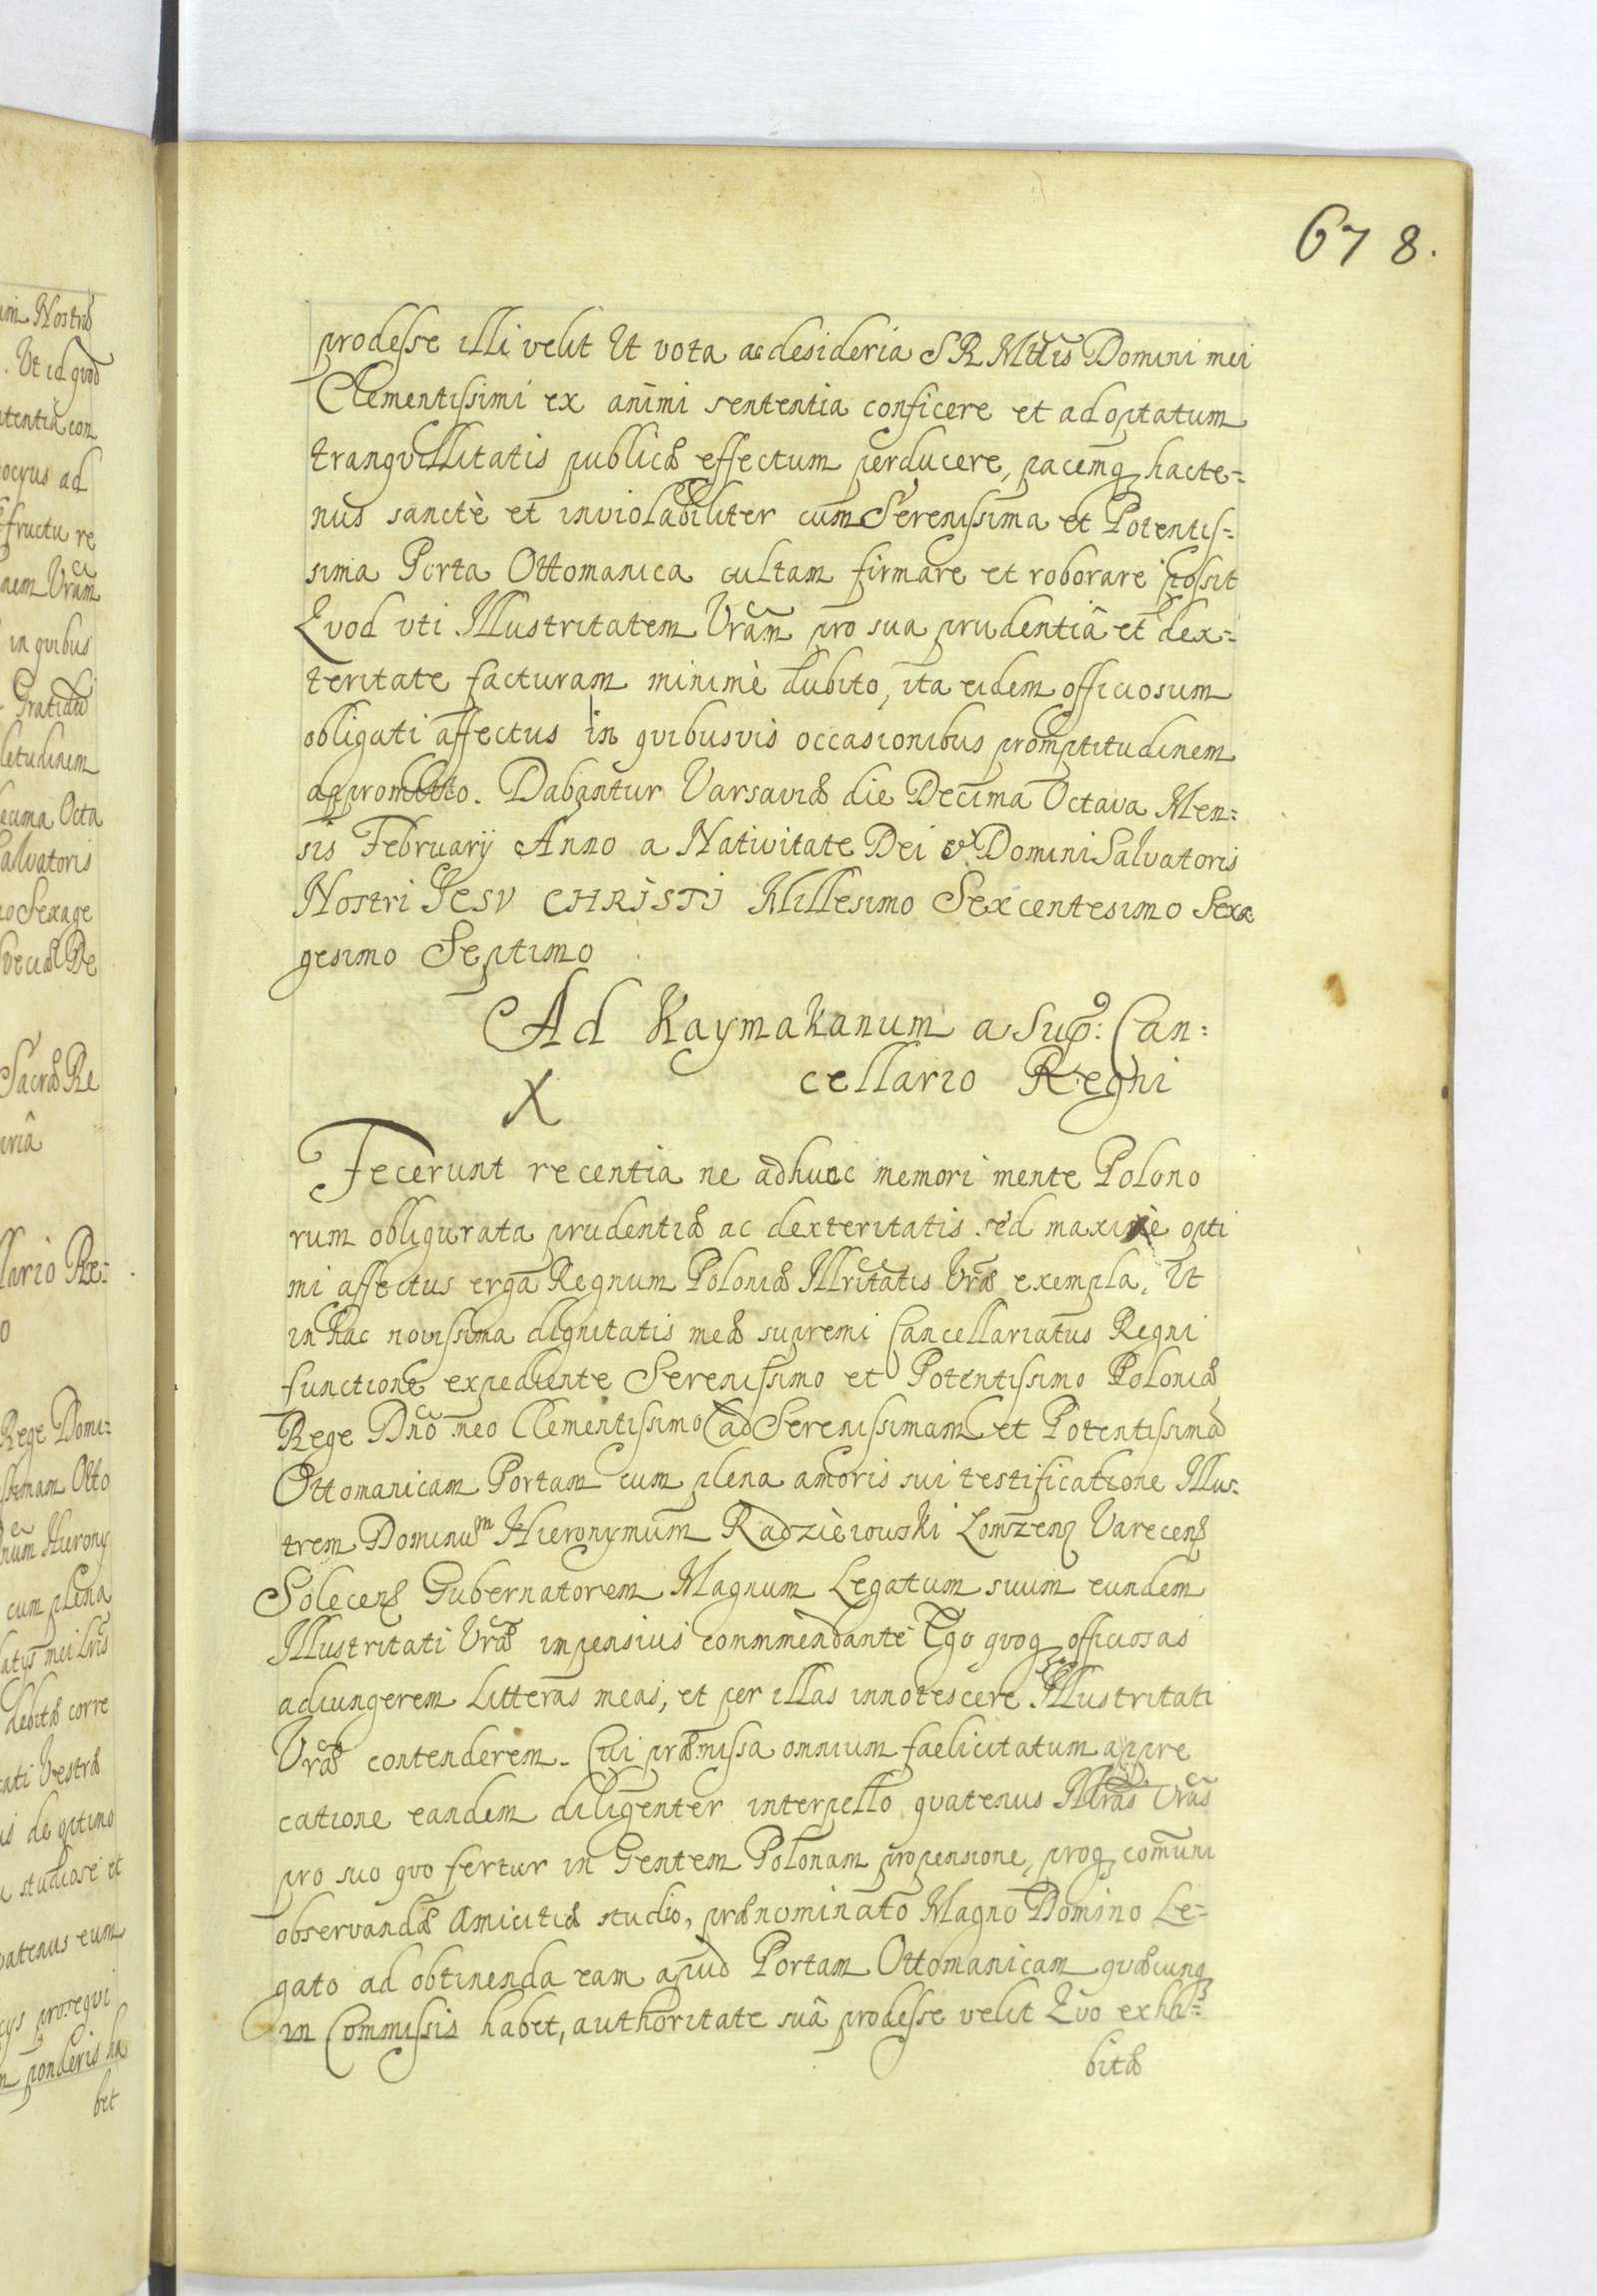 678.
prodesse illi velit Ut vota ac desideria S R Mttis Domini mei
Clementissimi ex animi sententia conficere et ad optatum
tranqvillitatis publicæ effectum perducere, pacemq hacte=
nus sanctè et inviolabiliter cum Serenissima et Potentis=
sima Porta Ottomanica cultam firmare et roborare possit
Qvod vti Illustritatem Vram pro sua prudentiâ et dex=
teritate facturam minimè dubito, ita eidem officiosum
obligati affectus in qvibusvis occasionibus promptitudinem
appromitto. Dabantur Varsaviæ die Decima Octava Men=
sis February Anno a Nativitate Dei & Domini Salvatoris
Nostri Jesv CHRISTI Millesimo Sexcentesimo Sexa
gesimo Septimo
Ad Kaymakanum a Sup: Can=
cellario Regni
X
Fecerunt recentia ne adhuc memori mente Polono
rum obligurata prudentiæ ac dexteritatis sed maximè opti
mi affectus erga Regnum Poloniæ Illritatis Vræ exempla, Ut
in hac novissima dignitatis meæ supremi Cancellariatus Regni
functione expediente Serenissimo et Potentissimo Poloniæ
Rege Dno meo Clementissimo ad Serenissimam et Potentissimā
Ottomanicam Portam cum plena amoris sui testificatione Illus=
trem Dominum Hieronymum Radzieiowski Lomzens Varecens
Solecens Gubernatorem Magnum Legatum suum eundem
Illustritati Vræ inpensius commmendante Ego qvoq officiosas
adiungerem Litteras meas, et per illas innotescere Illustritati
Vræ contenderem. Cui præmissa omnium faelicitatum appre
catione eandem diligenter interpello qvatenus Illtas Vras
pro suo qvo fertur in Gentem Polonam propensione, proq comuni
observandæ amicitiæ studio, prænominato Magno Domino Le=
gato ad obtinenda eam apud Portam Ottomanicam qvæcunq
in Commissis habet, authoritate suâ prodesse velit Qvo exhi=
bitæ